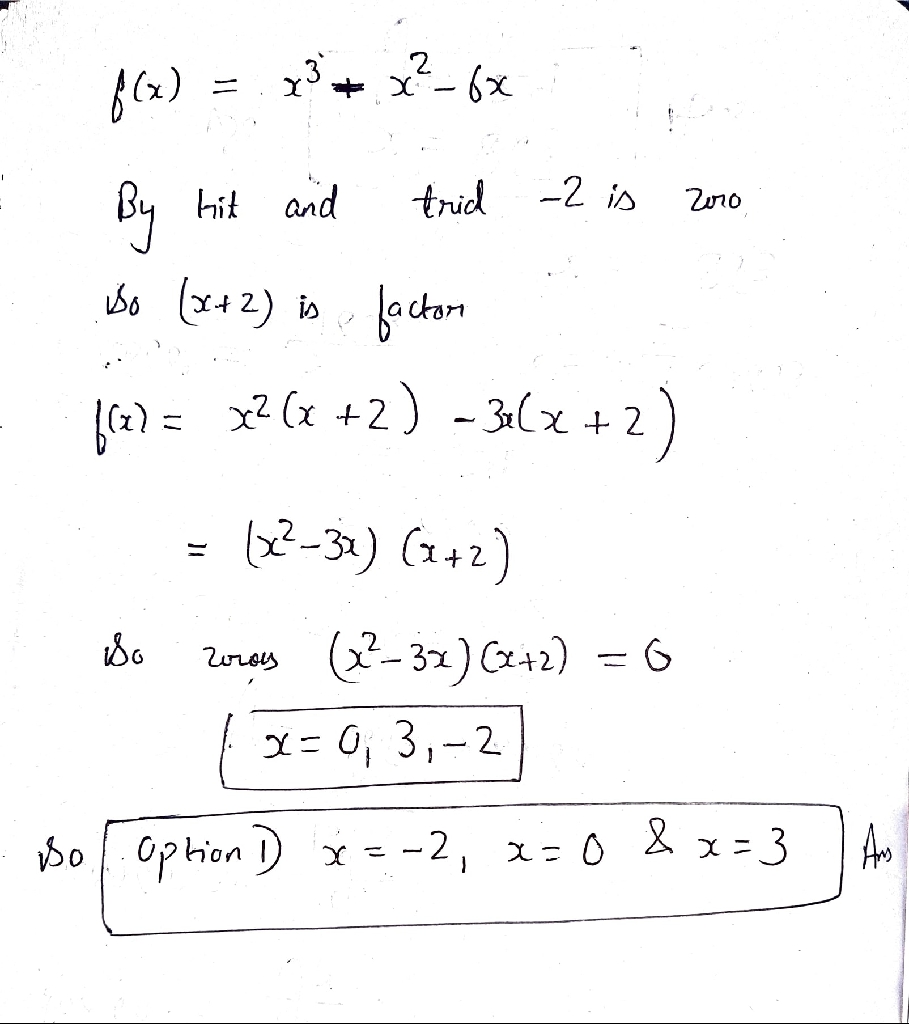 f(x) = x³ + x² - 6x
By hit and trial -2 is zero
So (x+2) is factor
f(x) = x² (x + 2) - 3x(x + 2)
= (x² - 3x) (x+2)
So zeroes (x² - 3x) (x+2) = 0
x = 0, 3, -2
So Option D) x = -2, x = 0 & x = 3 Ans